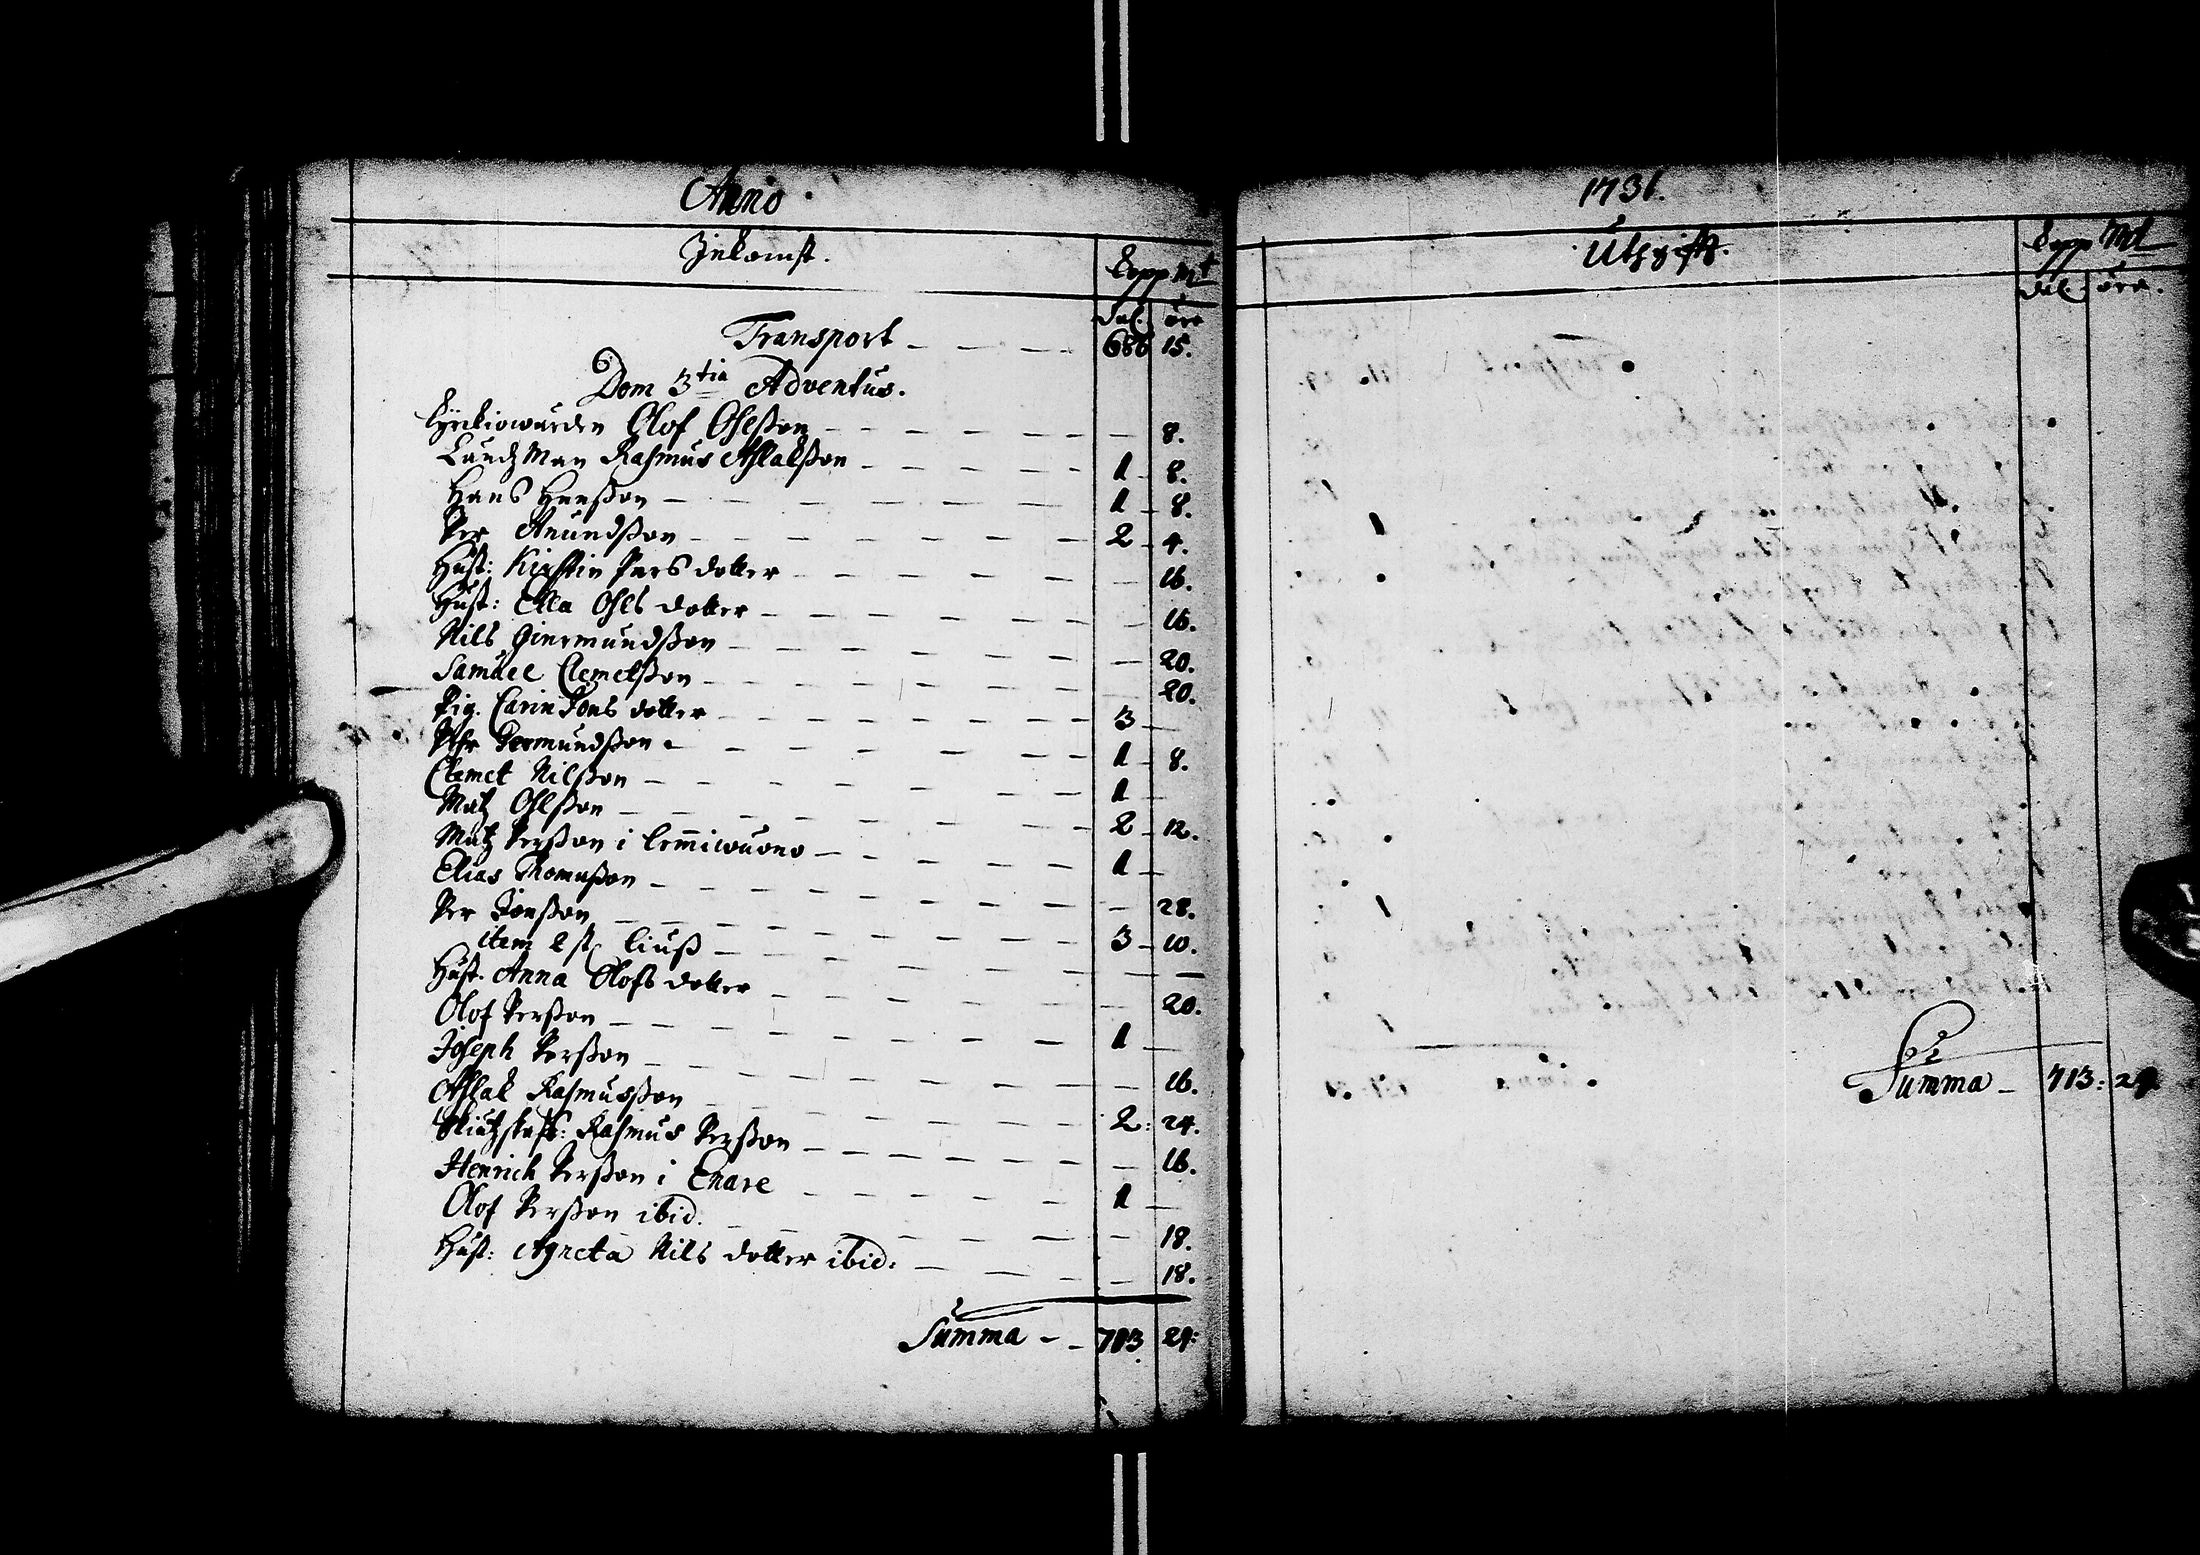 Anno
Inkomst.
Kopp Mt
dal. öre
Transport - - - 686 15.
Dom 3tia Adventus.
Kyrkiowärden Olof Olsßon - - - 8.
Landzman Rasmus Aslaksßon - - - 1 - 8.
Hans Hansßon - - - 1 - 8.
Per Anundsßon - - - 2 - 4.
Hust: Kirstin Pers dotter - - - 16.
Hust: Ella Ohls dotter - - - 16.
Nils Giermundsßon - - - 20.
Samuel Clemetsßon - - - 20.
Pig. Carin Jons dotter - - - 3 -
Germundsßon - - - 1 - 8.
Clemet Nilsßon - - - 1 -
Matz Ohlsßon - - - 2 - 12.
Matz Persßon i - - - 1 -
Elias Thomasßon - - - 28.
Per Jönsßon - - - 3 - 10.
item 2 st liuß - - -
Hust. Anna Olofs dotter - - - 20.
Olof Persßon - - - 1 -
Joseph Persßon - - - 16.
Aslak Rasmusßon - - - 2: 24.
Rasmus Persßon - - - 16.
Henrich Persßon i Enare - - - 1 -
Olof Persßon ibid. - - - 18.
Hust: Agneta Nils dotter ibid: - - - 18.
Summa - - 713 29:
1731.
Utgift.
Kopp Mt
dal. öre.
Summa - 713: 29